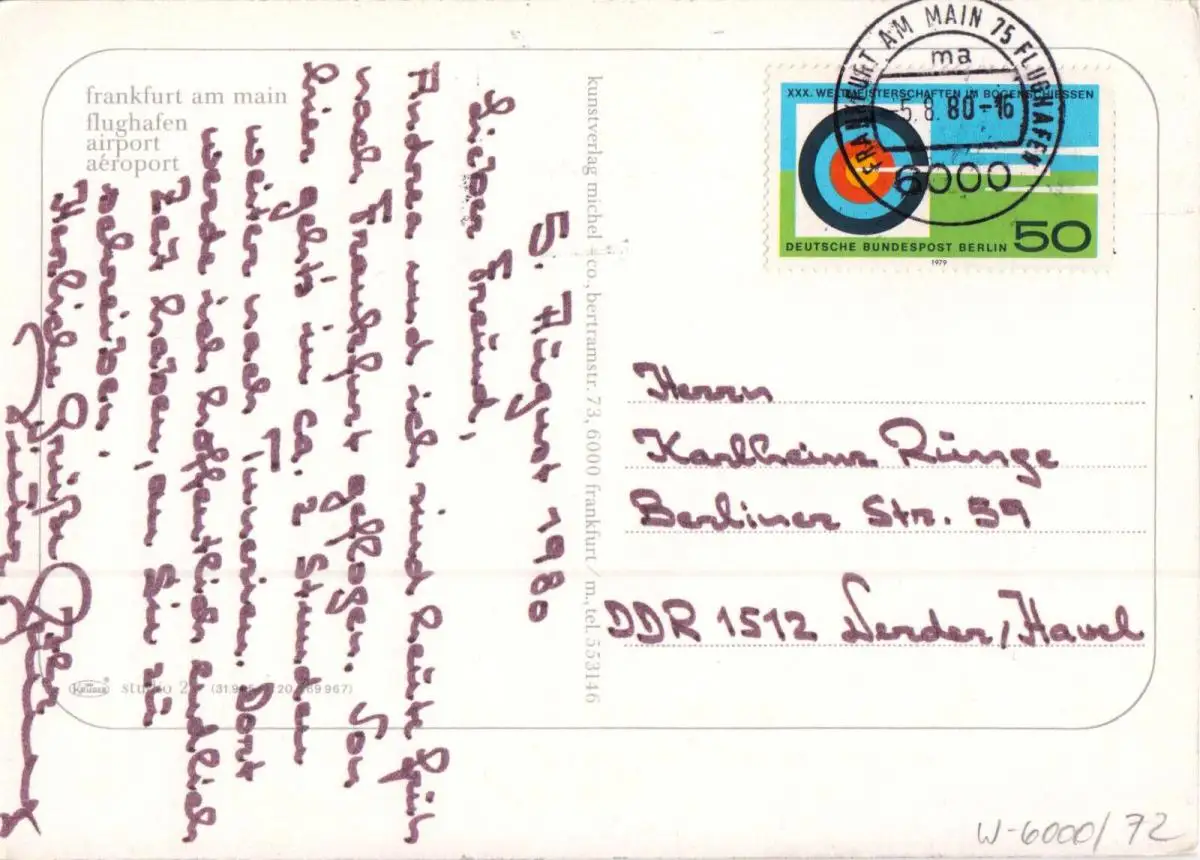 frankfurt am main
flughafen
airport
aéroport
5. August 1980
Lieber Freund,
Andrea und ich sind heute früh
nach Frankfurt geflogen. Von
hier geht's in ca. 2 Stunden
weiter nach Tunesien. Dort
werde ich hoffentlich endlich
Zeit haben, an Sie zu
schreiben.
Herzliche Grüße Ihr
kunstverlag michel + co., bertramstr. 73, 6000 frankfurt/m., tel. 553146
KRÜGER
studio 2
FRANKFURT AM MAIN 75 FLUGHAFEN
ma
-5.8.80-16
6000
XXX. WELTMEISTERSCHAFTEN IM BOGENSCHIESSEN
DEUTSCHE BUNDESPOST BERLIN 50
1979
Herrn
Karlheinz Runge
Berliner Str. 59
DDR 1512 Werder/Havel
W-6000/72